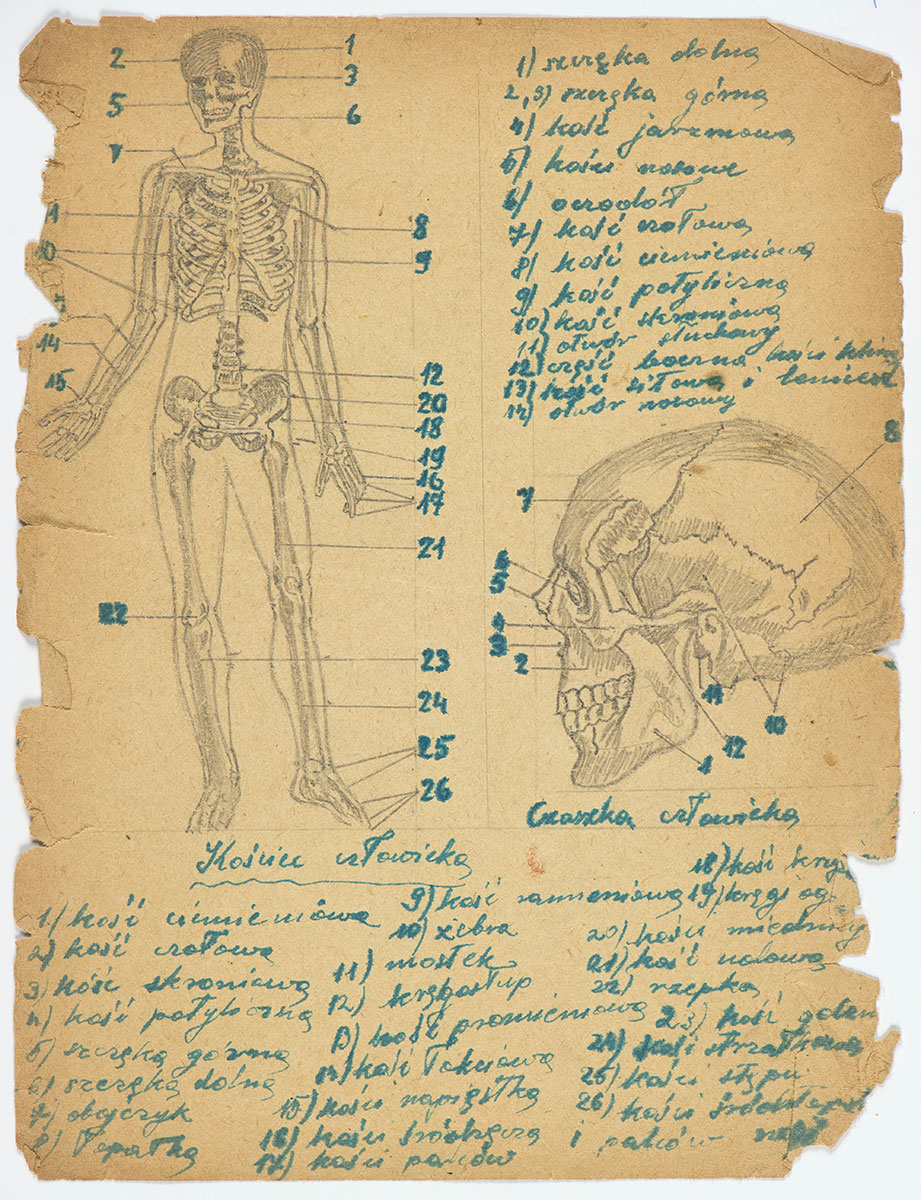 1) szczęka dolna
2, 3) szczęka górna
4) kość jarzmowa
5) kości nosowe
6) oczodół
7) kość czołowa
8) kość ciemieniowa
9) kość potyliczna
10) kość skroniowa
11) otwór słuchowy
12) część boczna kości klin
13) kość sitowa i lemiesz
14) otwór nosowy
2
1
3
5
6
7
8
9
10
14
15
12
20
18
19
16
17
21
22
23
24
25
26
8
7
6
5
4
3
2
11
10
12
1
Czaszka człowieka
Kościec człowieka
1) kość ciemieniowa
2) kość czołowa
3) kość skroniowa
4) kość potyliczna
5) szczęka górna
6) szczęka dolna
7) obojczyk
8) łopatka
9) kość ramieniowa
10) żebra
11) mostek
12) kręgosłup
13) kość promieniowa
14) kość łokciowa
15) kości napięstka
16) kości śródręcza
17) kości palców
18) kość krzy
19) kręgi og
20) kości miednicy
21) kość udowa
22) rzepka
23) kość golen
24) kość strzałkowa
25) kości stępu
26) kości śródstop
i palców nogi